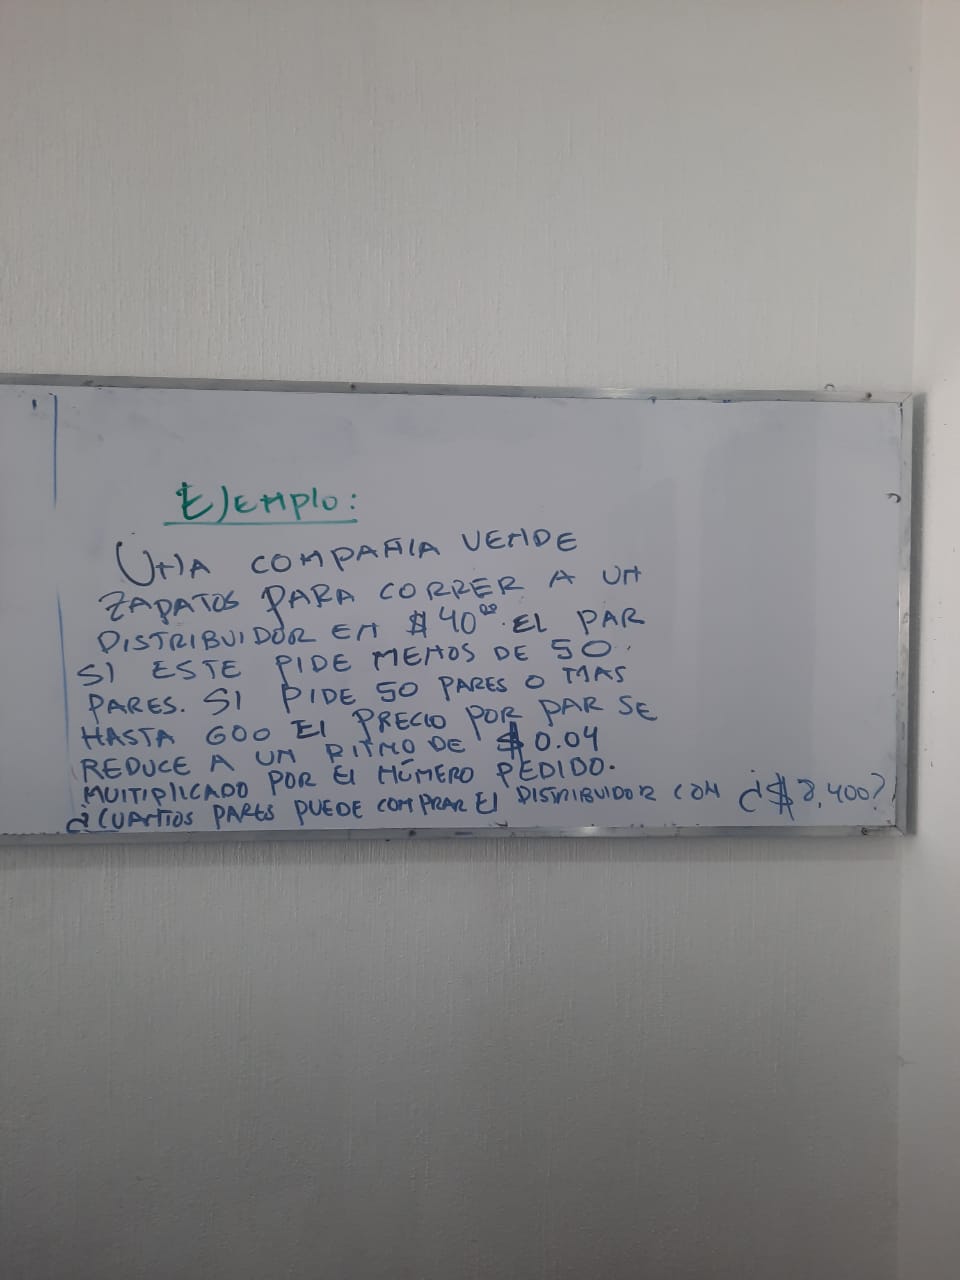 Ejemplo:
UNA COMPAÑIA VENDE
ZAPATOS PARA CORRER A UN
DISTRIBUIDOR EN $40⁰⁰. EL PAR
SI ESTE PIDE MENOS DE 50
PARES. SI PIDE 50 PARES O MAS
HASTA 600 El PRECIO POR PAR SE
REDUCE A UN RITMO DE $0.04
MULTIPLICADO POR El NÚMERO PEDIDO.
¿CUANTOS PARES PUEDE COMPRAR El DISTRIBUIDOR CON ¿$8,400?